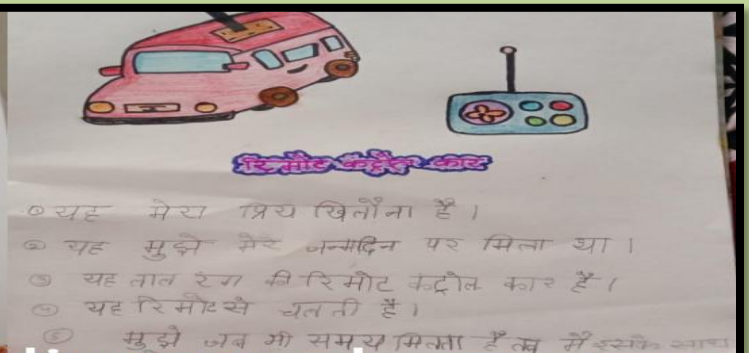 रिमोट कंट्रोल कार
① यह मेरा प्रिय खिलौना है।
② यह मुझे मेरे जन्मदिन पर मिला था।
③ यह लाल रंग की रिमोट कंट्रोल कार है।
④ यह रिमोट से चलती है।
⑤ मुझे जब भी समय मिलता है तब मैं इसके साथ